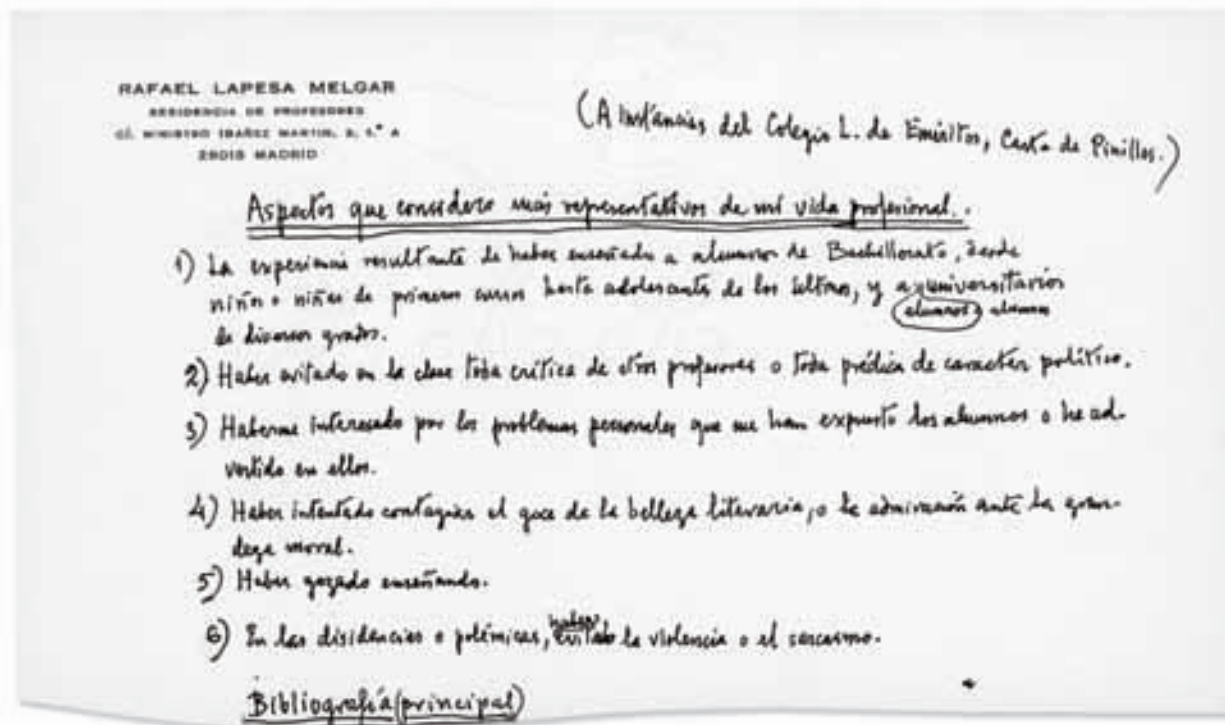 RAFAEL LAPESA MELGAR
RESIDENCIA DE PROFESORES
C/. MINISTRO IBAÑEZ MARTIN, 3, 1.º A
28015 MADRID
(A instancias del Colegio L. de Eméritos, Carta de Pinillos.)
Aspectos que considero más representativos de mi vida profesional.
1) La experiencia resultante de haber enseñado a alumnos de Bachillerato, desde
niños o niñas de primeros cursos hasta adolescentes de los últimos, y a universitarios
alumnos alumnos
de diversos grados.
2) Haber evitado en la clase toda crítica de otros profesores o toda prédica de caracter político.
3) Haberme interesado por los problemas personales que me han expuesto los alumnos o he ad-
vertido en ellos.
4) Haber intentado contagiar el goce de la belleza literaria, o la admiración ante la gran-
deza moral.
5) Haber gozado enseñando.
6) En las disidencias o polémicas, haber evitado la violencia o el sarcasmo.
Bibliografía (principal)